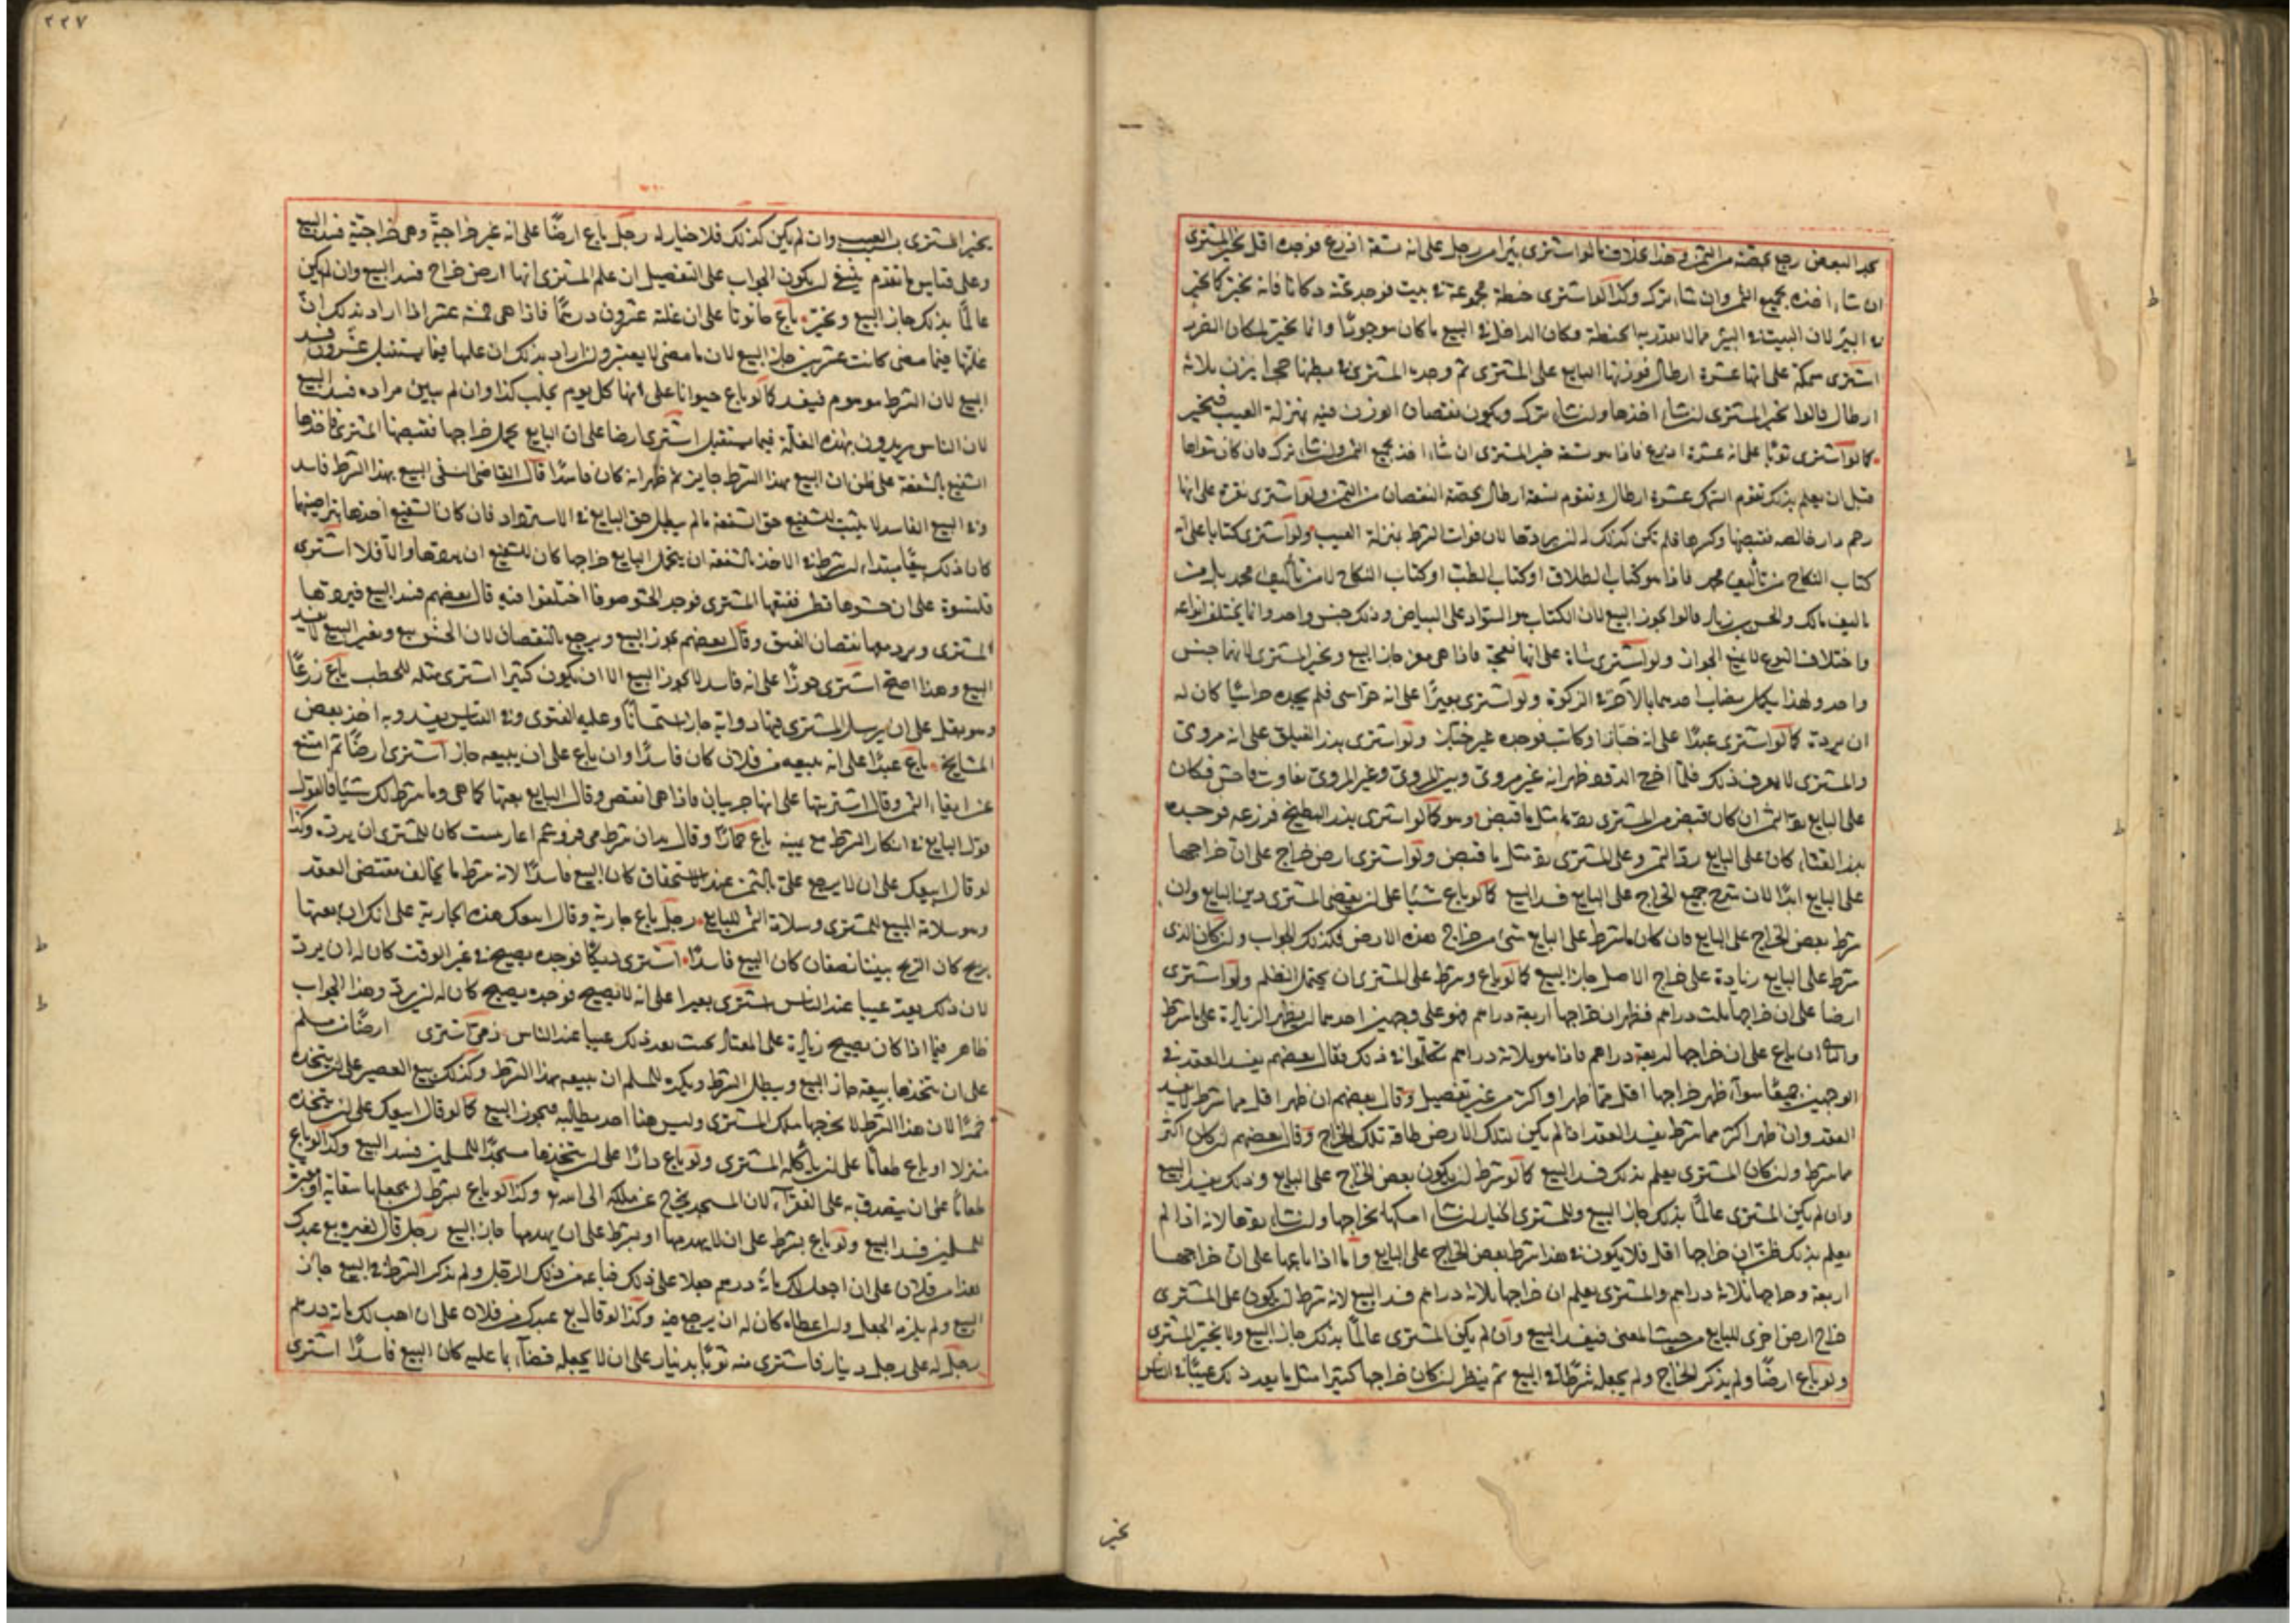 بجد البعض رجع بحصته من الثمن وهذا بخلاف ما لو اشترى بئرا من رجل على انه تسعة اذرع فوجده اقل يخير المشترى
ان شاء اخذه بجميع الثمن وان شاء تركه وكذا لو اشترى حنطة مجموعة في بيت فوجد تحته دكانا فانه يخير كما يخير
في البئر لان البيت والبئر مما لا يقدر به الحنطة فكان الداخل في البيع ما كان موجودًا وانما يخير لمكان الضرر
اشترى سمكة على انها عشرة ارطال فوزنها البايع على المشترى ثم وجد المشترى في بطنها حجرا يزن ثلاثة
ارطال قالوا يخير المشترى ان شاء اخذها وان شاء ترك ويكون نقصان الوزن فيه بمنزلة العيب فيخير
كما لو اشترى ثوبًا على انه عشرة اذرع فاذا هو تسعة خير المشترى ان شاء اخذ بجميع الثمن وان شاء ترك فان كان شواها
قبل ان يعلم بذلك تقوم السمك عشرة ارطال وتقوم سبعة ارطال بحصة النقصان من الثمن ولو اشترى نقرة على انها
فقبضها وكسرها فلم تكن كذلك له ان يردها لان فوات الشرط بمنزلة العيب ولو اشترى كتابا على انه
كتاب النكاح من تأليف محمد فاذا هو كتاب الطلاق او كتاب الطب او كتاب النكاح لا من تأليف محمد بل من
تاليف مالك والحسن بن زياد قالوا يجوز البيع لان الكتاب هو السواد على البياض وذلك جنس واحد وانما يختلف انواعه
واختلاف النوع لا يمنع الجواز ولو اشترى شاة على انها نعجة فاذا هى معز جاز البيع ويخير المشترى لانهما جنس
واحد ولهذا يكمل نصاب احدهما بالآخر في الزكوة ولو اشترى بعيرًا على انه خراسى فلم يجده خراسيًا كان له
ان يرده كما لو اشترى عبدًا على انه خباز او كاتب فوجده غير خباز ولو اشترى بذر الفيلق على انه مروى
والمشترى لا يعرف ذلك فلما اخرج الدود ظهر انه غير مروى وبين المروى وغير المروى تفاوت فاحش فكان
على البايع رد الثمن ان كان قبض من المشترى رد مثل ما قبض وهو كما لو اشترى بذر البطيخ فزرعه فوجده
بذر القثاء كان على البايع رد الثمن وعلى المشترى رد مثل ما قبض ولو اشترى ارض خراج على ان خراجها
على البايع ابدًا لان شرط جميع الخراج على البايع فسد البيع كما لو باع شيئا على ان يقضى المشترى دين البايع وان
شرط بعض الخراج على البايع فان كان ما شرط على البايع شئ من خراج هذه الارض فكذلك الجواب وان كان الذى
شرط على البايع زيادة على خراج الاصل جاز البيع كما لو باع وشرط على المشترى ان يحتمل الظلم ولو اشترى
ارضا على ان خراجها ثلث دراهم فظهر ان خراجها اربعة دراهم فهو على وجهين احدهما ان يظهر الزيادة على ما شرط
والثانى ان باع على ان خراجها اربعة دراهم فاذا هو ثلاثة دراهم تكلموا في ذلك فقال بعضهم يفسد العقد في
الوجهين جميعًا سواء ظهر خراجها اقل مما ظهر او اكثر من غير تفصيل وقال بعضهم ان ظهر اقل مما شرط لا يفسد
العقد وان ظهر اكثر مما شرط يفسد العقد اذا لم يكن لتلك الارض طاقة تلك الخراج وقال بعضهم ان كان اكثر
مما شرط وان كان المشترى يعلم بذلك فسد البيع كما لو شرط ان يكون بعض الخراج على البايع وذلك يفسد البيع
وان لم يكن المشترى عالمًا بذلك جاز البيع وللمشترى الخيار ان شاء امسكها بخراجها وان شاء ردها لانه اذا لم
يعلم بذلك ظن ان خراجها اقل فلا يكون هذا شرط بعض الخراج على البايع واما اذا باعها على ان خراجها
اربعة وخراجها ثلاثة دراهم والمشترى يعلم ان خراجها ثلاثة دراهم فسد البيع لانه شرط ان يكون على المشترى
خراج ارض اخرى للبايع من حيث المعنى فيفسد البيع وان لم يكن المشترى عالمًا بذلك جاز البيع ولا يخير المشترى
ولو باع ارضًا ولم يذكر الخراج ولم يجعله شرطًا في البيع ثم ينظر ان كان خراجها كثيرا مثل ما يعد ذلك عيبًا في الناس
يخير
٢٢٧
يخير المشترى بسبب العيب وان لم يكن كذلك فلا خيار له رجل باع ارضًا على انه غير خراجية وهى خراجية فسد البيع
وعلى قياس ما تقدم ينبغي ان يكون الجواب على التفصيل ان علم المشترى انها ارض خراج فسد البيع وان لم يكن
عالمًا بذلك جاز البيع ويخير باع حانوتا على ان غلته عشرون درهمًا فاذا هى خمسة عشر اذا اراد بذلك ان
غلتها فيما مضى كانت عشرين جاز البيع لان ما مضى لا يعتبر وان اراد بذلك ان غلتها فيما يستقبل عشرون فسد
البيع لان الشرط موهوم فيفسد كما لو باع حيوانا على انها كل يوم يحلب كذا وان لم يبين مراده فسد البيع
لان الناس يريدون بهذه الغلة فيما يستقبل اشترى ارضا على ان البايع يحمل خراجها فقبضها المشترى فاخذها
الشفيع بالشفعة على ظن ان البيع بهذا الشرط جايز ثم ظهر انه كان فاسدًا قال القاضى النسفى البيع بهذا الشرط فاسد
وفي البيع الفاسد لا يثبت للشفيع حق الشفعة ما لم يبطل حق البايع في الاسترداد فان كان الشفيع اخذها بتراضيهما
كان ذلك بيعًا مبتداء ان شرط في الاخذ بالشفعة ان يتحمل البايع خراجها كان للشفيع ان يردها والا فلا اشترى
قلنسوة على ان حشوها قطن ففتقها المشترى فوجد الحشو صوفا اختلفوا فيه قال بعضهم فسد البيع فيردها
المشترى ويرد معها نقصان الفتق وقال بعضهم يجوز البيع ويرجع بالنقصان لان الحشو تبع وبتغير التبع لا يفسد
البيع وهذا اصح اشترى جوزًا على انه فاسد لا يجوز البيع الا ان يكون كثيرا اشترى مثله للحطب باع زرعًا
وهو بقل على ان يرسل المشترى فيها دوابه جاز استحسانًا وعليه الفتوى وفي القياس يفسد وبه اخذ بعض
المشايخ باع عبدًا على انه يبيعه من فلان كان فاسدًا وان باع على ان يبيعه جاز اشترى ارضًا ثم امتنع
عن ايفاء الثمن وقال اشتريتها على انها جريبان فاذا هى انقص وقال البايع بعتها كما هى وما شرط لك شيئا فالقول
قول البايع في انكار الشرط مع يمينه باع حمارًا وقال كان للمشترى ان يرده وكذا
لو قال ابيعك على ان لا يرجع على بالثمن عند الاستحقاق كان البيع فاسدًا لانه شرط ما يخالف مقتضى العقد
وهو سلامة المبيع للمشترى وسلامة الثمن للبايع رجل باع جارية وقال ابيعك هذه الجارية على انك ان بعتها
بربح كان الربح بيننا نصفان كان البيع فاسدًا اشترى ديكًا فوجده يصيح في غير الوقت كان له ان يرده
لان ذلك يعد عيبا عند الناس اشترى بعيرا على انه لا يصيح فوجده يصيح كان له ان يرده وهذا الجواب
ظاهر فيما اذا كان يصيح زيادة على المعتاد بحيث يعد ذلك عيبا عند الناس ذمى اشترى ارضًا من مسلم
على ان يتخذها بيعة جاز البيع ويبطل الشرط ويكره للمسلم ان يبيعه بهذا الشرط وكذلك بيع العصير على ان يتخذه
خمرًا لان هذا الشرط لا يخرجها ملك المشترى وليس هنا احد يطالبه فيجوز البيع كما لو قال ابيعك على ان يتخذه
منزلا او باع طعامًا على ان ياكله المشترى ولو باع دارًا على ان يتخذها مسجدًا للمسلمين فسد البيع وكذا لو باع
طعامًا على ان يتصدق به على الفقراء لان المسجد يخرج عن ملكه الى الله وكذا لو باع بشرط ان يجعلها سقاية او مقبرة
للمسلمين فسد البيع ولو باع بشرط على ان لا يهدمها او بشرط على ان يهدمها جاز البيع رجل قال لغيره بع عبدك
هذا من فلان على ان اجعل لك مائة درهم جعلا على ذلك فباعه من ذلك الرجل ولم يذكر الشرط في البيع جاز
البيع ولم يلزمه الجعل وان اعطاه كان له ان يرجع فيه وكذا لو قال بع عبدك من فلان على ان اهب لك مائة درهم
رجل له على رجل دينار فاشترى منه ثوبًا بدينار على ان لا يجعله قضاء بما عليه كان البيع فاسدًا اشترى